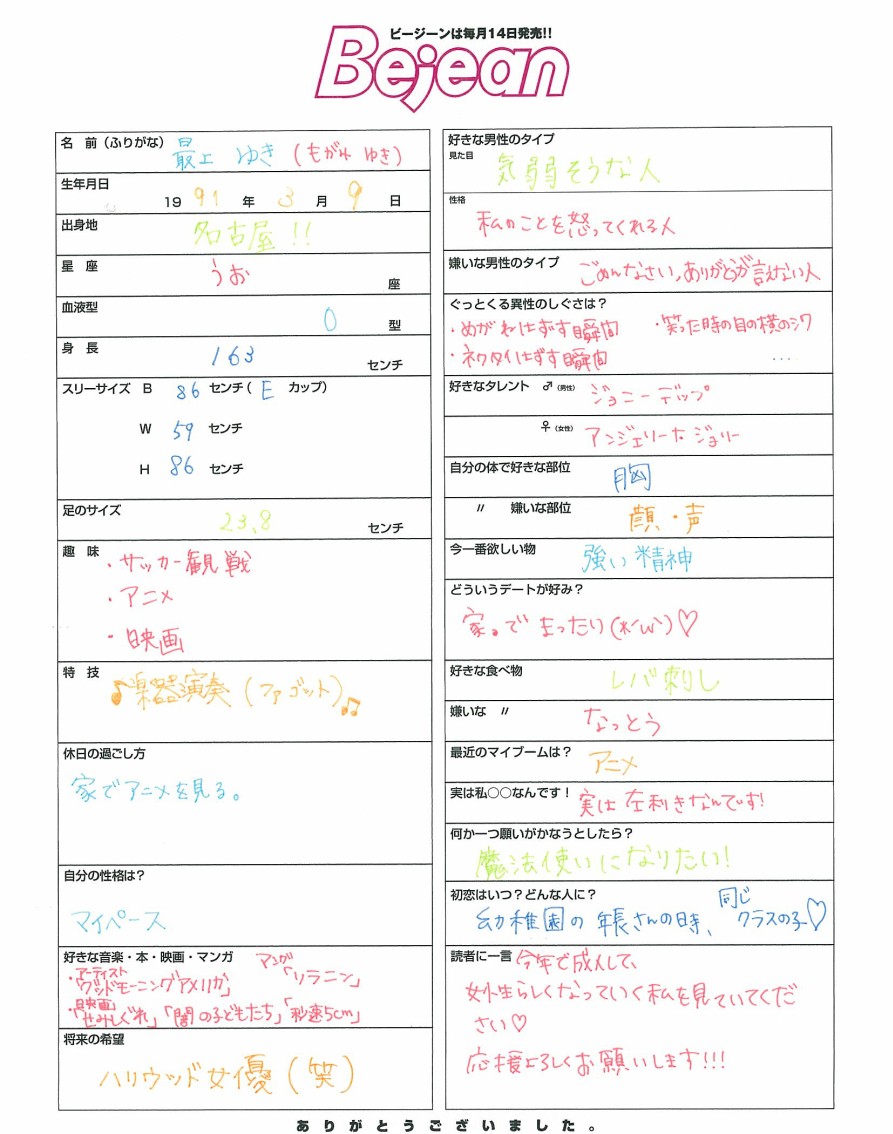 ビージーンは毎月14日発売!!
Bejean
名 前(ふりがな) 最上 ゆき (もがみ ゆき)
生年月日
1991年 3月 9日
出身地 名古屋!!
星 座 うお 座
血液型 O 型
身 長 163 センチ
スリーサイズ B 86 センチ( E カップ)
W 59 センチ
H 86 センチ
足のサイズ 23.8 センチ
趣 味 ・サッカー観戦
・アニメ
・映画
特 技 ♪楽器演奏(ファゴット)♫
休日の過ごし方
家でアニメを見る。
自分の性格は?
マイペース
好きな音楽・本・映画・マンガ マンガ「ソラニン」
・アーティスト「グッドモーニングアメリカ」
・映画「せみしぐれ」「闇の子どもたち」「秒速5cm」
将来の希望
ハリウッド女優(笑)
好きな男性のタイプ
見た目 気弱そうな人
性格 私のことを怒ってくれる人
嫌いな男性のタイプ ごめんなさい、ありがとうが言えない人
ぐっとくる異性のしぐさは?
・めがねはずす瞬間 ・笑った時の目の横のシワ
・ネクタイはずす瞬間 ...
好きなタレント ♂(男性) ジョニーデップ
♀(女性) アンジェリーナジョリー
自分の体で好きな部位 胸
〃 嫌いな部位 顔・声
今一番欲しい物 強い精神
どういうデートが好み?
家。でまったり(*´ω`)♡
好きな食べ物 レバ刺し
嫌いな 〃 なっとう
最近のマイブームは? アニメ
実は私○○なんです! 実は左利きなんです!
何か一つ願いがかなうとしたら?
魔法使いになりたい!
初恋はいつ?どんな人に?
幼稚園の年長さんの時、同じクラスの子♡
読者に一言 今年で成人して、
女性らしくなっていく私を見ていてくだ
さい♡
応援よろしくお願いします!!!
ありがとうございました。